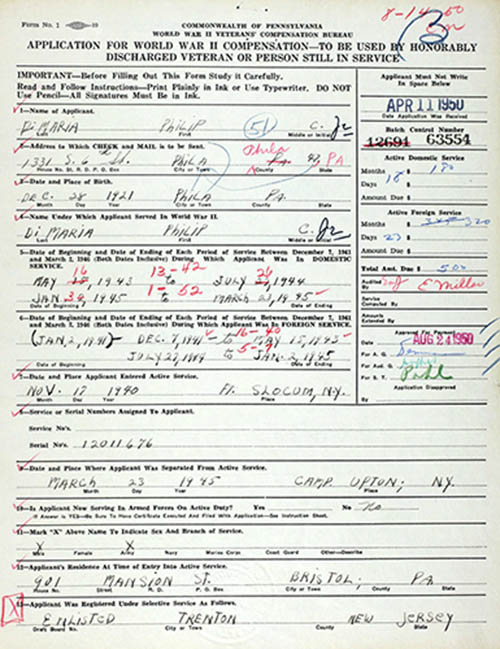 Form No. 1
8-14-50
COMMONWEALTH OF PENNSYLVANIA
WORLD WAR II VETERANS' COMPENSATION BUREAU
APPLICATION FOR WORLD WAR II COMPENSATION—TO BE USED BY HONORABLY
DISCHARGED VETERAN OR PERSON STILL IN SERVICE
IMPORTANT—Before Filling Out This Form Study it Carefully.
Read and Follow Instructions—Print Plainly in Ink or Use Typewriter. DO NOT
Use Pencil—All Signatures Must Be in Ink.
Applicant Must Not Write
In Space Below
APR 11 1950
Date Application Was Received
1—Name of Applicant.
Di MARIA PHILIP (51) C. Jr
Last First Middle or Initial
Batch Control Number
12691 63554
2—Address to Which CHECK and MAIL is to be Sent.
Phila
1331 S. 6 PHILA PA. 47, PA
House No. St. R. D. P. O. Box City or Town County State
Active Domestic Service
Months 18 180
Days
Amount Due $
3—Date and Place of Birth.
DEC. 28 1921 PHILA PA.
Month Day Year City or Town State
4—Name Under Which Applicant Served In World War II.
Di MARIA PHILIP C. Jr
Last First Middle or Initial
Active Foreign Service
Months 320
Days 23
Amount Due $
5—Date of Beginning and Date of Ending of Each Period of Service Between December 7, 1941
and March 2, 1946 (Both Dates Inclusive) During Which Applicant Was In DOMESTIC
SERVICE.
16 13-42 26
MAY 1943 to JULY 1944
1-52
JAN 1945 to MARCH 23, 1945
Date of Beginning Date of Ending
Total Amt. Due $ 500
Audited By E Miller
Service Computed By
Amounts Extended By
6—Date of Beginning and Date of Ending of Each Period of Service Between December 7, 1941
and March 2, 1946 (Both Dates Inclusive) During Which Applicant Was In FOREIGN SERVICE.
16-40
(JAN. 2, 1941) DEC. 7, 1941 to MAY 15, 1943
5-7
JULY 27, 1944 to JAN. 2, 1945
Date of Beginning Date of Ending
Approved For Payment
AUG 24 1950
For A. G.
For Aud. G.
For S. T.
Application Disapproved
By
7—Date and Place Applicant Entered Active Service.
NOV. 17 1940 Ft. SLOCUM, N.Y.
Month Day Year Place
8—Service or Serial Numbers Assigned To Applicant.
Service No's.
Serial No's. 12011676
9—Date and Place Where Applicant Was Separated From Active Service.
MARCH 23 1945 CAMP UPTON, NY
Month Day Year Place
10—Is Applicant Now Serving In Armed Forces On Active Duty? Yes No No
If Answer Is YES—Be Sure To Have Certificate Executed And Filed With Application—See Instruction Sheet.
11—Mark "X" Above Name To Indicate Sex And Branch of Service.
X X
Male Female Army Navy Marine Corps Coast Guard Other—Describe
12—Applicant's Residence At Time of Entry Into Active Service.
901 MANSION St. BRISTOL, PA
House No. Street R. D. P. O. Box City or Town County State
X
13—Applicant Was Registered Under Selective Service As Follows.
ENLISTED TRENTON NEW JERSEY
Draft Board No. City or Town County State